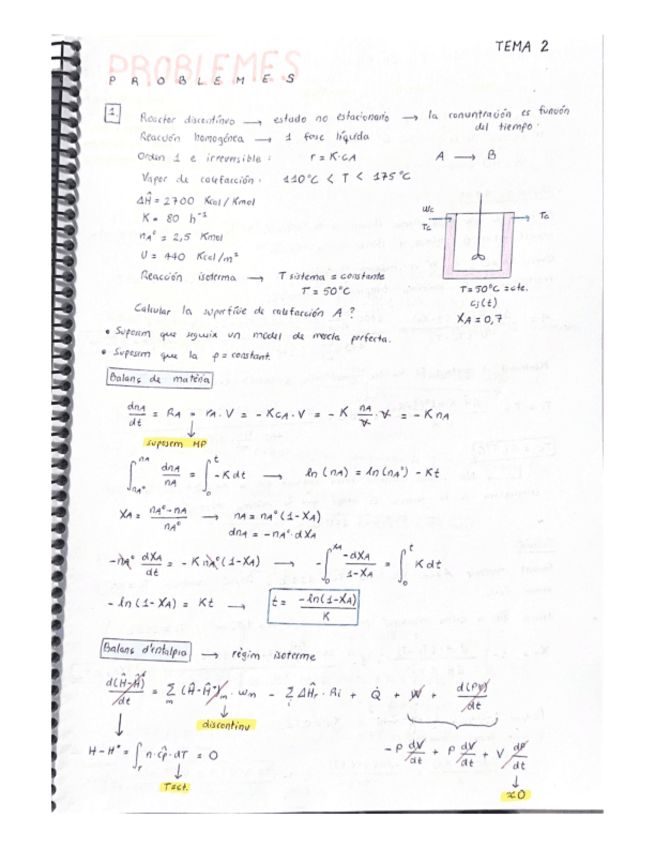 TEMA 2
PROBLEMES
PROBLEMES
1. Reactor discontínuo → estado no estacionario → la concentración es función del tiempo.
Reacción homogénea → 1 fase líquida
Orden 1 e irreversible: r = K·CA A → B
Vapor de calefacción: 110°C < T < 175°C
ΔĤ = 2700 Kcal/Kmol
K = 80 h⁻¹
nA° = 2,5 Kmol
U = 440 Kcal/m²
Wc
Tc
Tc
Reacción isoterma → T sistema = constante
T = 50°C
T = 50°C = cte.
cj(t)
XA = 0,7
Calcular la superfíve de calefacción A?
• Suposem que segueix un model de mescla perfecta.
• Suposem que la ρ = constant.
Balanç de matèria
dnA/dt = RA = rA·V = -KCA·V = -K nA/V·V = -KnA
suposem MP
∫nA°^nA dnA/nA = ∫0^t -Kdt → ln(nA) = ln(nA°) - Kt
XA = (nA°-nA)/nA° → nA = nA°(1-XA)
dnA = -nA°·dXA
-nA° dXA/dt = -KnA°(1-XA) → -∫0^XA -dXA/(1-XA) = ∫0^t Kdt
-ln(1-XA) = Kt → t = -ln(1-XA)/K
Balanç d'entalpia → règim isoterme
d(Ĥ-Ĥ°)/dt = Σm (Ĥ-Ĥ°)m·wm - Σi ΔĤr·Ri + Q̇ + Ẇ + d(PV)/dt
discontinu
H-H° = ∫T n·ĉp·dT = 0
-P dV/dt + P dV/dt + V dP/dt
T=ct.
≈0